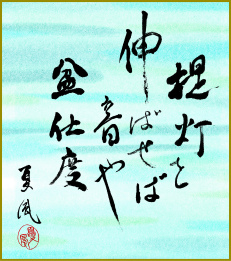 提灯を
伸ばせば
音や
盆仕度
夏風